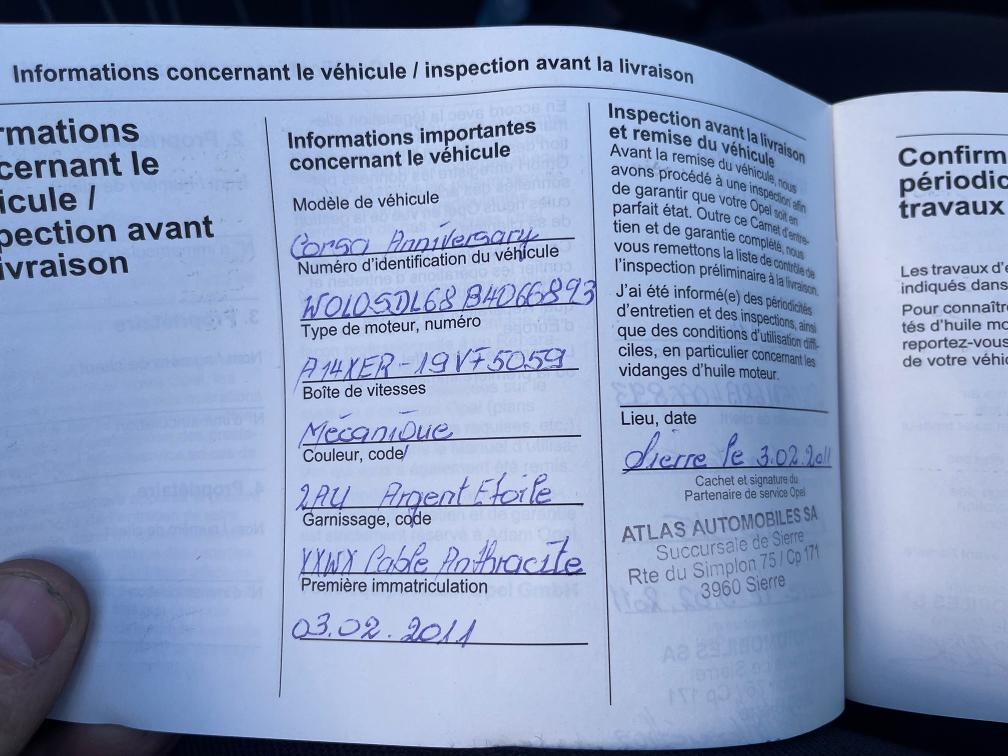 Informations concernant le véhicule / inspection avant la livraison
rmations
cernant le
icule /
pection avant
ivraison
Informations importantes
concernant le véhicule
Modèle de véhicule
Corsa Anniversary
Numéro d'identification du véhicule
W0L0SDL68B4066893
Type de moteur, numéro
A14XER-19VF5059
Boîte de vitesses
Mécanique
Couleur, code
2AU Argent Etoile
Garnissage, code
Anthracite
Première immatriculation
03.02.2011
Inspection avant la livraison
et remise du véhicule
Avant la remise du véhicule, nous
avons procédé à une inspection afin
de garantir que votre Opel soit en
parfait état. Outre ce Carnet d'entre-
tien et de garantie complété, nous
vous remettons la liste de contrôle de
l'inspection préliminaire à la livraison.
J'ai été informé(e) des périodicités
d'entretien et des inspections, ainsi
que des conditions d'utilisation diffi-
ciles, en particulier concernant les
vidanges d'huile moteur.
Lieu, date
Sierre le 3.02.2011
Cachet et signature du
Partenaire de service Opel
ATLAS AUTOMOBILES SA
Succursale de Sierre
Rte du Simplon 75 / Cp 171
3960 Sierre
Confirm
périodic
travaux
Les travaux d'e
indiqués dans
Pour connaître
tés d'huile mo
reportez-vous
de votre véhic